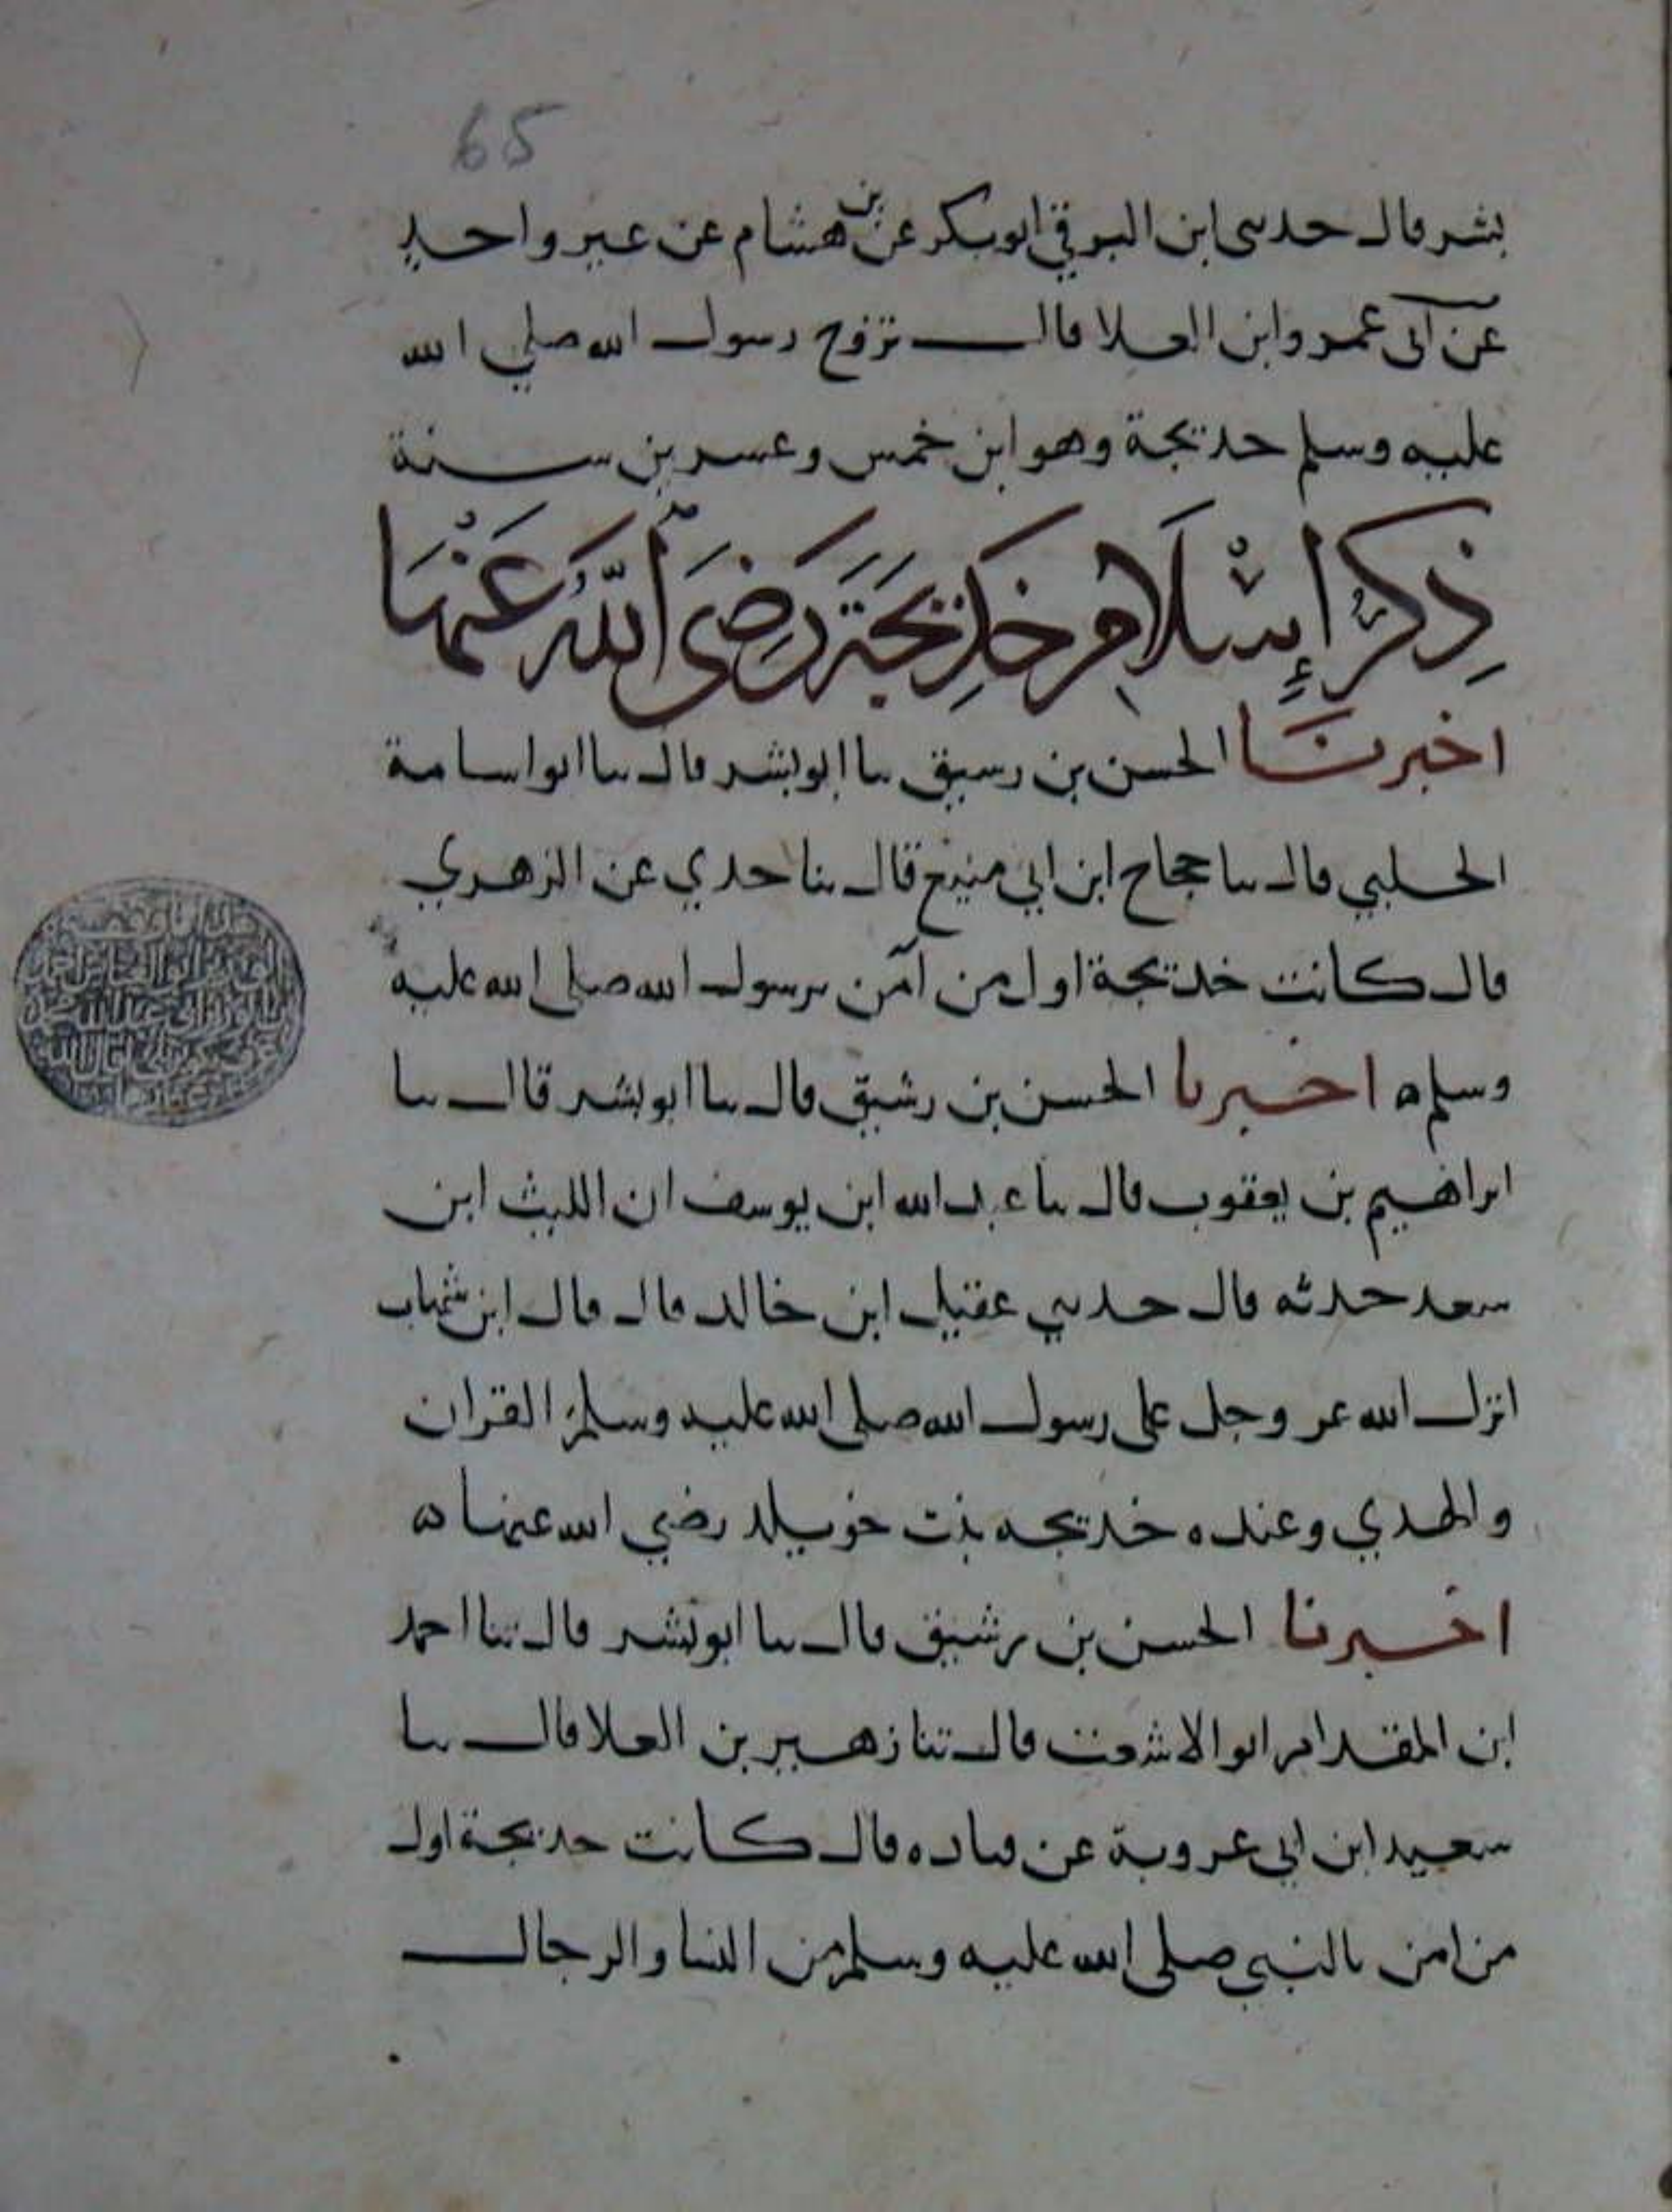 65
بشر قال حدثني ابن البرقي ابو بكر عن بن هشام عن غير واحد
عن أبي عمرو ابن العلا قال تزوج رسول الله صلي الله
عليه وسلم خديجة وهو ابن خمس وعشرين سنة
ذِكْرُ إِسْلَامِ خَدِيجَةَ رَضِيَ اللَّهُ عَنْهَا
اخبرنا الحسن بن رسيق ثنا ابو بشر قال ثنا ابو اسامة
الحلبي قال ثنا حجاج ابن ابي منيع قال ثنا جدي عن الزهري
قال كانت خديجة اول من آمن برسول الله صلى الله عليه
وسلم ه اخبرنا الحسن بن رشيق قال ثنا ابو بشر قال ثنا
ابراهيم بن يعقوب قال ثنا عبد الله ابن يوسف ان الليث ابن
سعد حدثه قال حدثني عقيل ابن خالد قال قال ابن شهاب
انزل الله عز وجل على رسول الله صلى الله عليه وسلم القران
والهدي وعنده خديجه بنت خويلد رضي الله عنها ه
اخبرنا الحسن بن رشيق قال ثنا ابو بشر قال ثنا احمد
ابن المقدام ابو الاشعث قال ثنا زهير بن العلا قال ثنا
سعيد ابن ابي عروبة عن قتاده قال كانت خديجة اول
من امن بالنبي صلى الله عليه وسلم من النسا والرجال